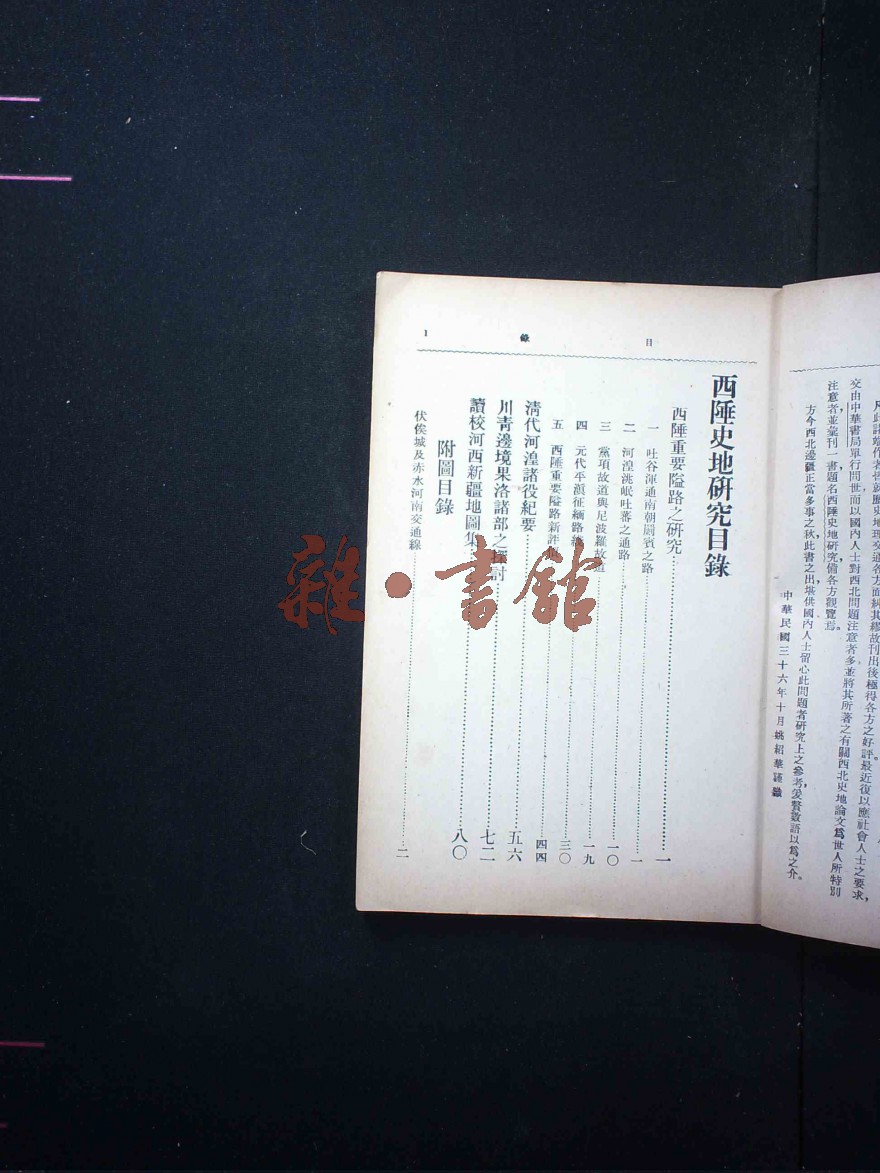 凡此諸端作者皆就歷史地理交通各方面糾其繆故刊出後極得各方之好評。最近復以應社會人士之要求，
交由中華書局單行問世而以國內人士對西北問題注意者多並將其所著之有關西北史地論文爲世人所特別
注意者，並彙刊一書題名西陲史地研究備各方觀覽焉。
方今西北邊疆正當多事之秋，此書之出堪供國內人士留心此問題者研究上之參考，爰贅數語以爲之介。
中華民國三十六年十月姚紹華謹識
目錄 1
西陲史地研究目錄
西陲重要隘路之研究 一
一 吐谷渾通南朝罽賓之路 一
二 河湟洮岷吐蕃之通路 一〇
三 黨項故道與尼波羅故道 一九
四 元代平滇征緬路線 三〇
五 西陲重要隘路新評 四四
清代河湟諸役紀要 五六
川青邊境果洛諸部之探討 七二
讀校河西新疆地圖集 八〇
附圖目錄
伏俟城及赤水河南交通線 二
雜·書館